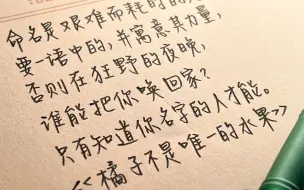 命名是艰难而耗时的，
要一语中的，并寓意其力量，
否则在狂野的夜晚，
谁能把你唤回家？
只有知道你名字的人才能。
《橘子不是唯一的水果》